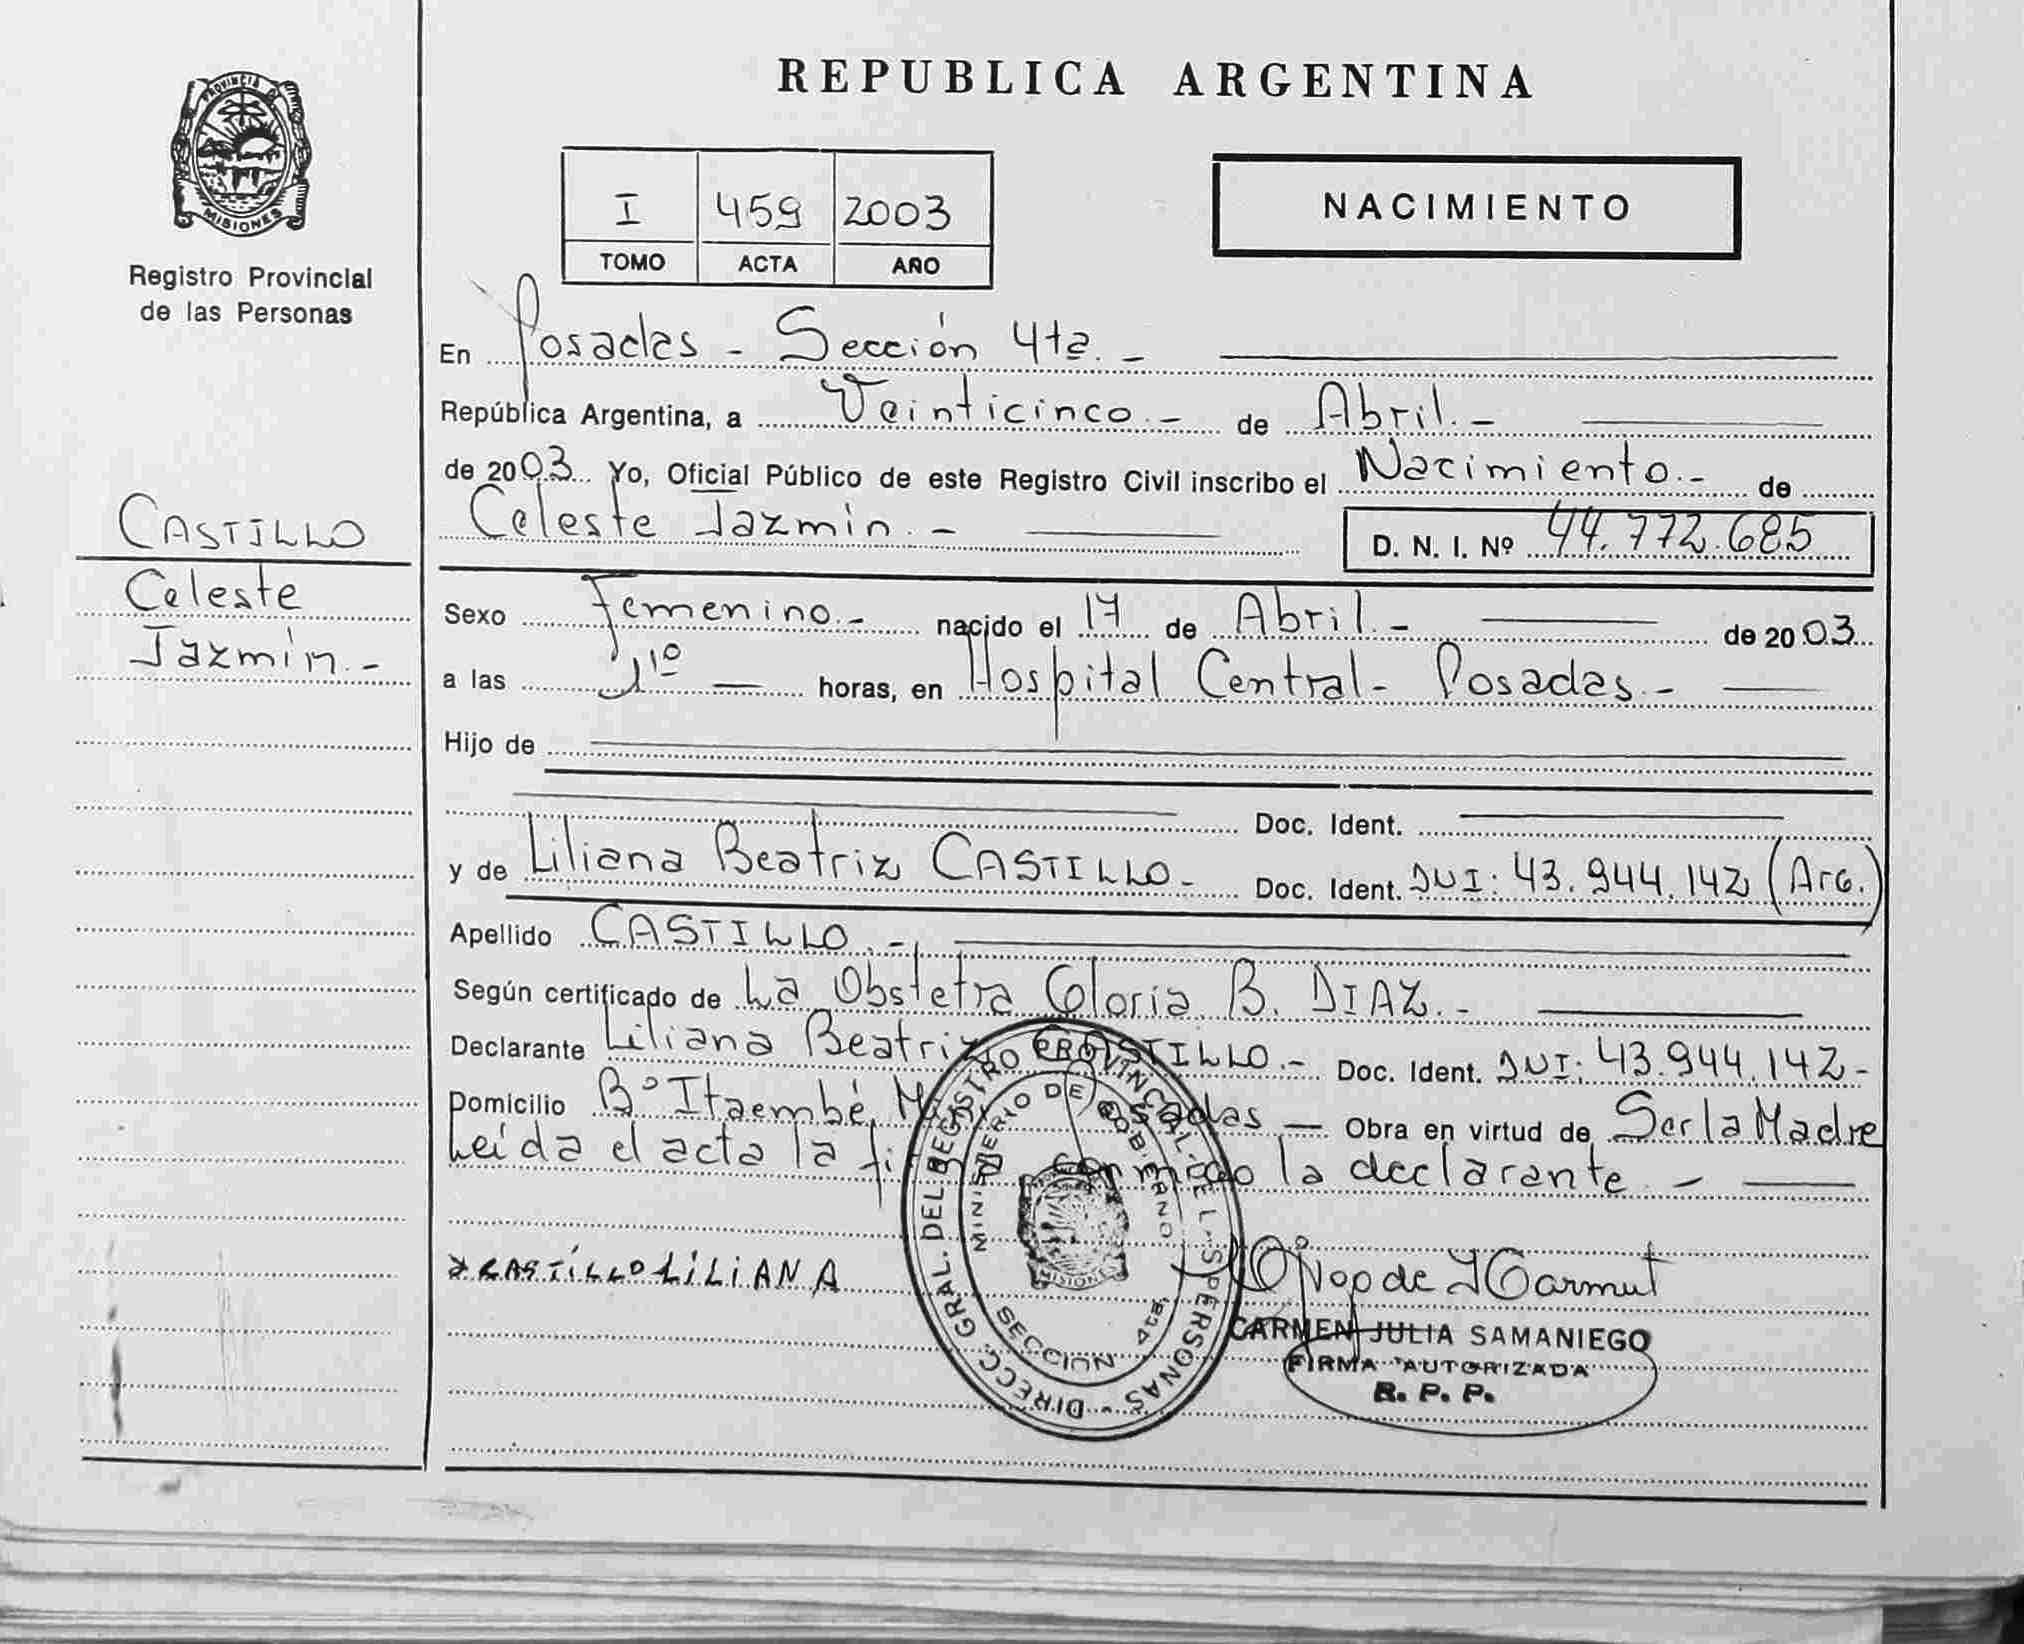 REPUBLICA ARGENTINA
PROVINCIA DE
MISIONES
Registro Provincial
de las Personas
I 459 2003
TOMO ACTA AÑO
NACIMIENTO
En Posadas - Sección 4ta. -
República Argentina, a Veinticinco.- de Abril.-
de 2003. Yo, Oficial Público de este Registro Civil inscribo el Nacimiento.- de
Celeste Jazmín.- D. N. I. Nº 44.772.685
CASTILLO
Celeste
Jazmín.-
Sexo Femenino.- nacido el 17 de Abril.- de 2003.
a las horas, en Hospital Central- Posadas.-
Hijo de
Doc. Ident.
y de Liliana Beatriz CASTILLO- Doc. Ident. DNI: 43.944.142 (Arg.)
Apellido CASTILLO.-
Según certificado de La Obstetra Gloria B. DIAZ.-
Declarante Liliana Beatriz CASTILLO.- Doc. Ident. DNI: 43.944.142-
Domicilio Bº Itaembé Posadas — Obra en virtud de Ser la Madre
Leída el acta la conmigo la declarante.-
CASTÍLLO LiLiANA
DIRECC. GRAL. DEL REGISTRO PROVINCIAL DE L. S PERSONAS -
MINISTERIO DE GOBIERNO
MISIONES
SECCION 4ta.
CARMEN JULIA SAMANIEGO
FIRMA AUTORIZADA
R. P. P.